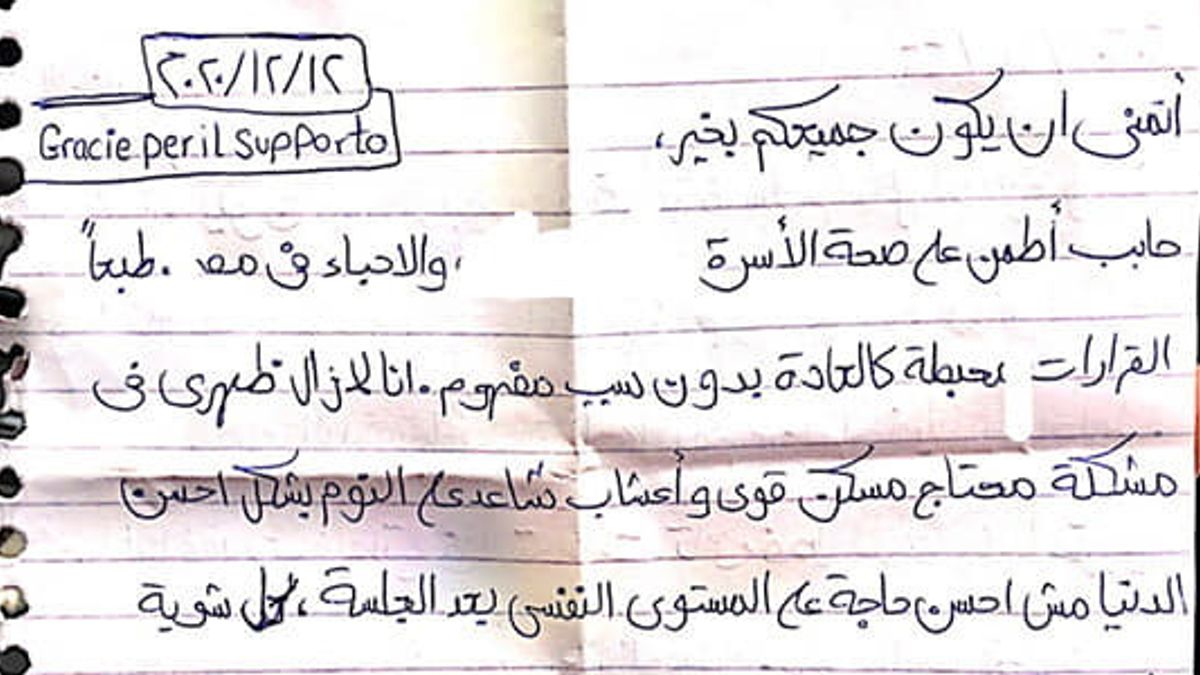 ٢٠٢٠/١٢/١٢
Gracie per il supporto
أتمنى ان يكون جميعكم بخير،
حابب أطمن على صحة الأسرة ، والاحباء فى مصر. طبعاً
القرارات محبطة كالعادة بدون سبب مفهوم. انا لازال ظهرى فى
مشكلة محتاج مسكن قوى وأعشاب تساعدى على النوم بشكل احسن
الدنيا مش احسن حاجة على المستوى النفسى بعد الجلسة، كل شوية